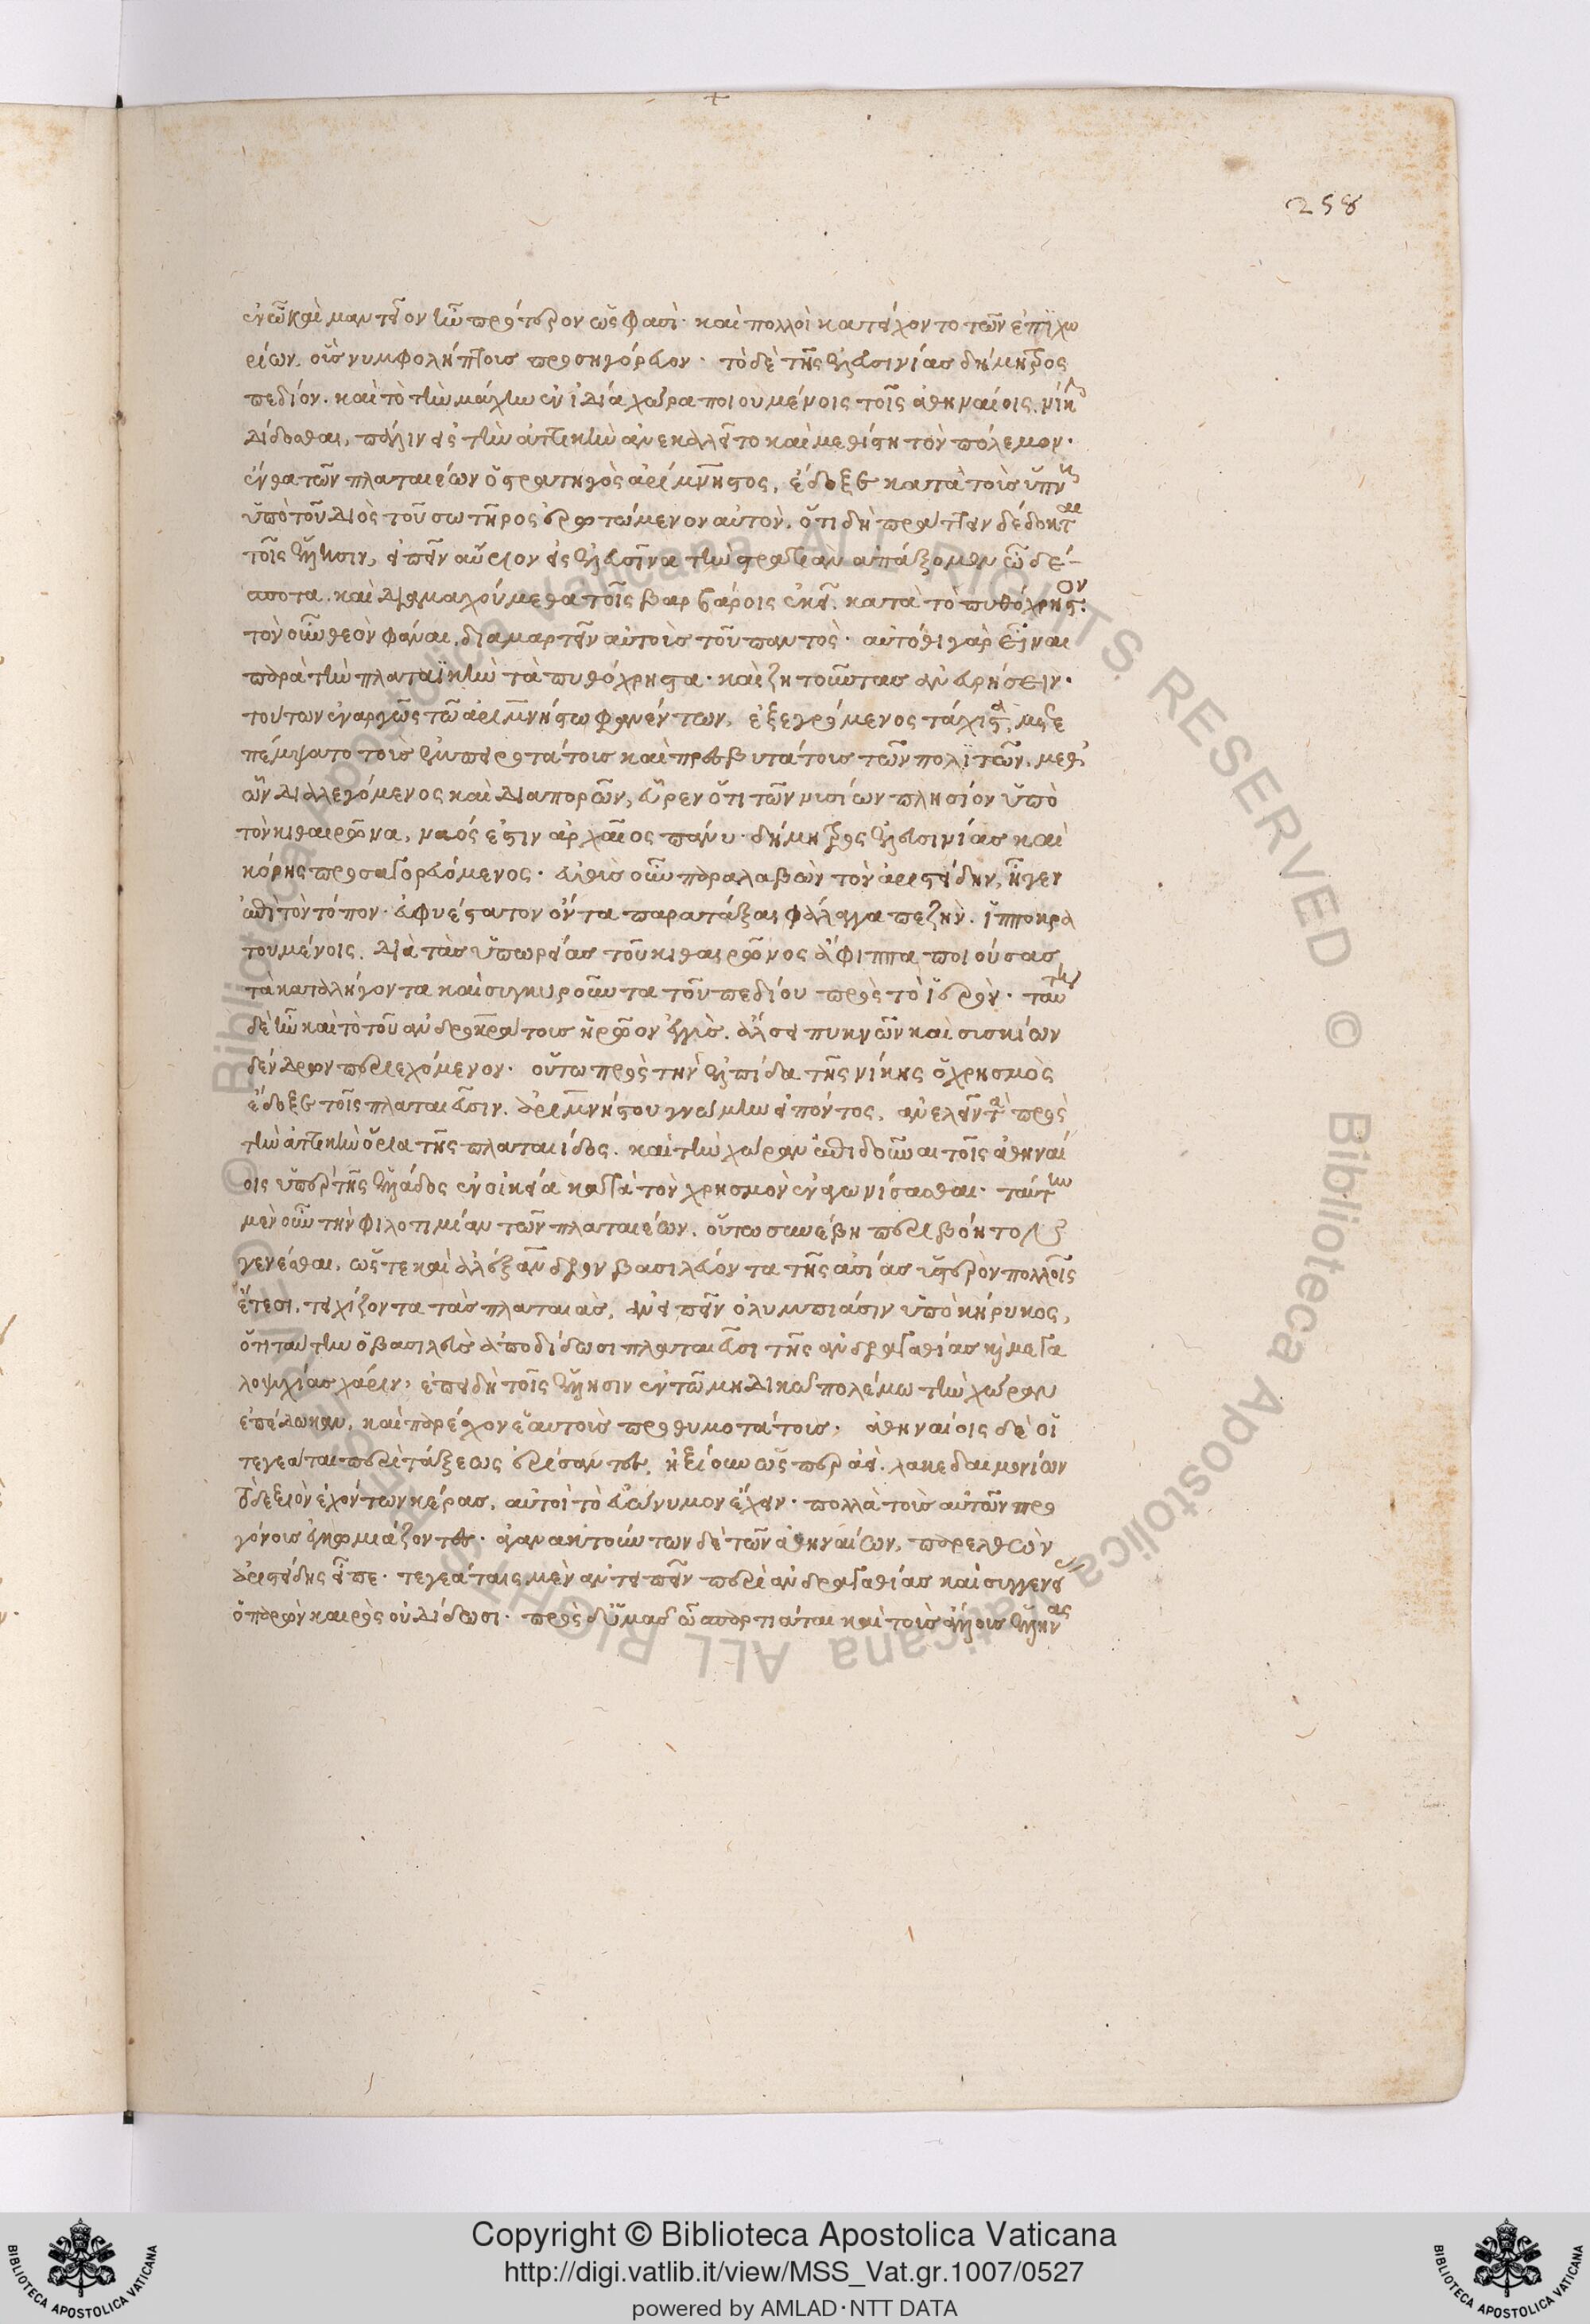 258
ἐν ὧ καὶ μαντεῖον ἦν πρότερον ὥς φασι· καὶ πολλοὶ κατείχοντο τῶν ἐπιχω
ρίων. οὓς νυμφολήπτους προσηγόρευον· τὸ δὲ τῆς ἐλευσινίας δήμητρος
πεδίον. καὶ τὸ τὴν μάχην ἐν ἰδία χώρα ποιουμένοις τοῖς ἀθηναίοις. νίκην
δίδοσθαι, πάλιν εἰς τὴν ἀττικὴν ἀνεκαλεῖτο καὶ μεθίστη τὸν πόλεμον·
ἔνθα τῶν πλαταιέων ὁ στρατηγὸς ἀρίμνηστος, ἔδοξε κατὰ τοὺς ὕπνους
ὑπὸ τοῦ Διὸς τοῦ σωτῆρος ἐρωτώμενον αὐτὸν. ὅτι δὴ πράττειν δέδοκται
τοῖς ἕλλησιν, εἰπεῖν αὔριον εἰς ἐλευσῖνα τὴν στρατιὰν ἀπάξομεν ὦ δέ-
σποτα. καὶ διαμαχούμεθα τοῖς βαρβάροις ἐκεῖ. κατὰ τὸ πυθόχρηστον·
τὸν οὖν θεὸν φάναι, διαμαρτεῖν αὐτοὺς τοῦ παντὸς· αὐτόθι γὰρ εἶναι
παρὰ τὴν πλαταϊκὴν τὰ πυθόχρηστα· καὶ ζητοῦντας ἀνευρήσειν·
τούτων ἐναργῶς τῶ ἀριμνήστω φανέντων, ἐξεγρόμενος τάχιστα μετε
πέμψατο τοὺς ἐμπειροτάτους καὶ πρεσβυτάτους τῶν πολιτῶν. μεθ'
ὧν διαλεγόμενος καὶ διαπορῶν, εὗρεν ὅτι τῶν υσιῶν πλησίον ὑπὸ
τὸν κιθαιρῶνα, ναός ἐστιν ἀρχαῖος πάνυ δήμητρος ἐλευσινίας καὶ
κόρης προσαγορευόμενος· εὐθὺς οὖν παραλαβὼν τὸν ἀριστείδην, ἦγεν
ἐπὶ τὸν τόπον· εὐφυέστατον ὄντα παρατάξαι φάλαγγα πεζὴν. ἱπποκρα
τουμένοις. διὰ τὰς ὑπωρείας τοῦ κιθαιρῶνος ἄφιππα ποιούσας
τὰ καταλήγοντα καὶ συγκυροῦντα τοῦ πεδίου πρὸς τὸ ἱερὸν· ταύτην
δὲ ἦν καὶ τὸ τοῦ ἀνδροκράτους ἡρῶον ἐγγὺς. ἄλσει πυκνῶν καὶ συσκίων
δένδρων περιεχόμενον· οὕτω πρὸς τὴν ἐλπίδα τῆς νίκης ὁ χρησμὸς
ἔδοξε τοῖς πλαταιεῦσιν. ἀριμνήστου γνώμην εἰπόντος, ἀνελεῖν τὰ πρὸς
τὴν ἀττικὴν ὅρια τῆς πλαταιίδος. καὶ τὴν χώραν ἐπιδοῦναι τοῖς ἀθηναί
οις ὑπὲρ τῆς ἑλλάδος ἐν οἰκεία κατὰ τὸν χρησμὸν ἐναγωνίσασθαι· ταύτην
μὲν οὖν τὴν φιλοτιμίαν τῶν πλαταιέων. οὕτω συνέβη περιβόητον
γενέσθαι, ὥστε καὶ ἀλέξανδρον βασιλεύοντα τῆς ἀσίας ὕστερον πολλοῖς
ἔτεσι. τειχίζοντα τὰς πλαταιὰς, ἀνειπεῖν ὀλυμπιάσιν ὑπὸ κήρυκος,
ὅτι ταύτην ὁ βασιλεὺς ἀποδίδωσι πλαταιεῦσι τῆς ἀνδραγαθίας καὶ μεγα
λοψυχίας χάριν, ἐπειδὴ τοῖς ἕλλησιν ἐν τῶ μηδικῶ πολέμω τὴν χώραν
ἐπέδωκαν, καὶ παρέσχον ἑαυτοὺς προθυμοτάτους· ἀθηναίοις δὲ οἱ
τεγεάται περὶ τάξεως ἐρίσαντες, ἠξίουν ὥσπερ ἀεὶ. λακεδαιμονίων
τὸ δεξιὸν ἐχόντων κέρας, αὐτοὶ τὸ εὐώνυμον ἔχειν· πολλὰ τοὺς αὑτῶν προ
γόνους ἐγκωμιάζοντες· ἀγανακτούντων δὲ τῶν ἀθηναίων, παρελθὼν
ἀριστείδης εἶπε· τεγεάταις μὲν ἀντειπεῖν περὶ ἀνδραγαθίας καὶ εὐγενείας
ὁ παρὼν καιρὸς οὐ δίδωσι· πρὸς δ' ὑμᾶς ὦ σπαρτιάται καὶ τοὺς ἄλλους ἕλληνας
Copyright © Biblioteca Apostolica Vaticana
http://digi.vatlib.it/view/MSS_Vat.gr.1007/0527
powered by AMLAD·NTT DATA